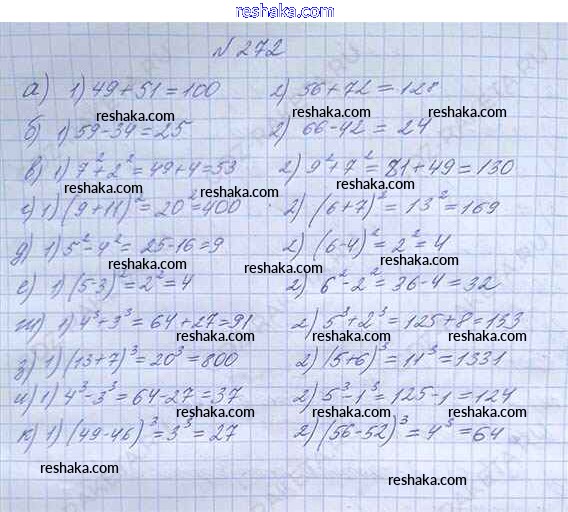 reshaka.com
N 272
а) 1) 49+51=100 2) 56+72=128
reshaka.com reshaka.com
б) 1) 59-34=25 2) 66-42=24
в) 1) 7²+2²=49+4=53 2) 9²+7²=81+49=130
reshaka.com reshaka.com
г) 1) (9+11)²=20²=400 2) (6+7)²=13²=169
reshaka.com reshaka.com
д) 1) 5²-4²=25-16=9 2) (6-4)²=2²=4
reshaka.com reshaka.com
е) 1) (5-3)²=2²=4 2) 6²-2²=36-4=32
reshaka.com
ж) 1) 4³+3³=64+27=91 2) 5³+2³=125+8=133
reshaka.com reshaka.com
з) 1) (13+7)³=20³=800 2) (5+6)³=11³=1331
reshaka.com
и) 1) 4³-3³=64-27=37 2) 5³-1³=125-1=124
reshaka.com reshaka.com
к) 1) (49-46)³=3³=27 2) (56-52)³=4³=64
reshaka.com reshaka.com